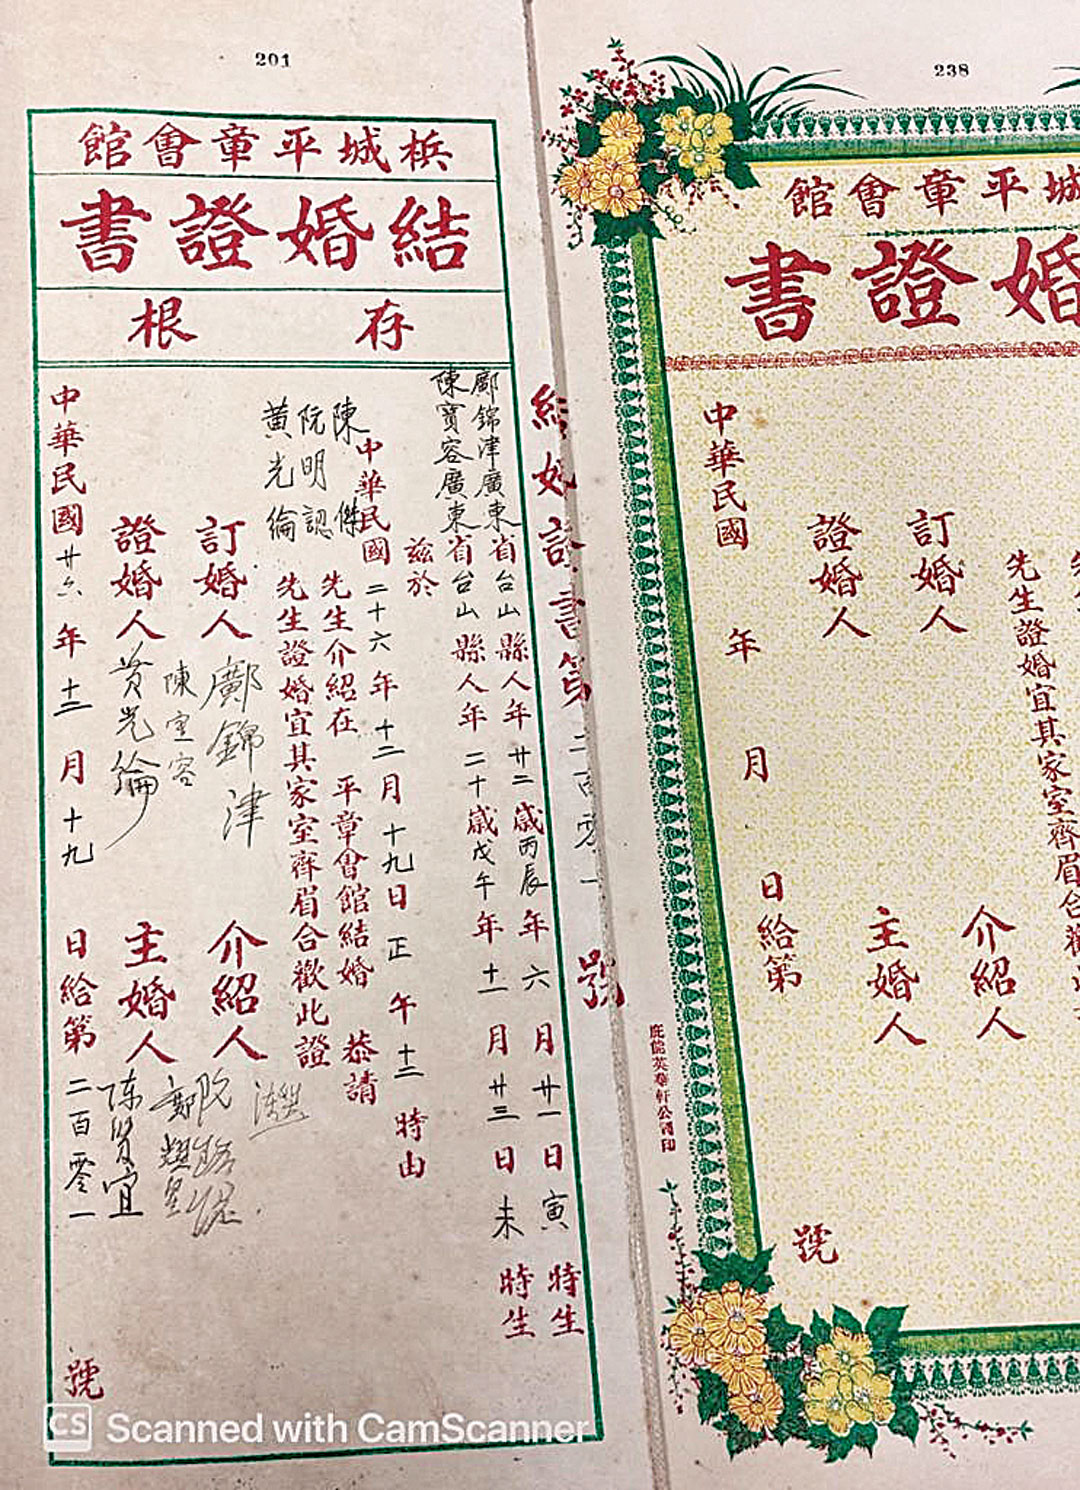 201
檳城平章會館
結婚證書
存根
鄺錦津廣東省台山縣人年廿二歲丙辰年六月廿一日寅時生
陳寶容廣東省台山縣人年二十歲戊午年十一月廿三日未時生
茲於
中華民國二十六年十二月十九日正午十二時由
陳傑
阮明認先生介紹在平章會館結婚恭請
黃光綸先生證婚宜其家室齊眉合歡此證
訂婚人鄺錦津
陳宝容
介紹人
證婚人黃光綸
主婚人
陈贤宜
中華民國廿六年十二月十九日給第二百零一號
結婚證書第二百零一號
238
城平章會館
婚證書
先生證婚宜其家室齊眉合歡
訂婚人
介紹人
證婚人
主婚人
中華民國年月日給第號
庇能英華軒公司印
CS Scanned with CamScanner